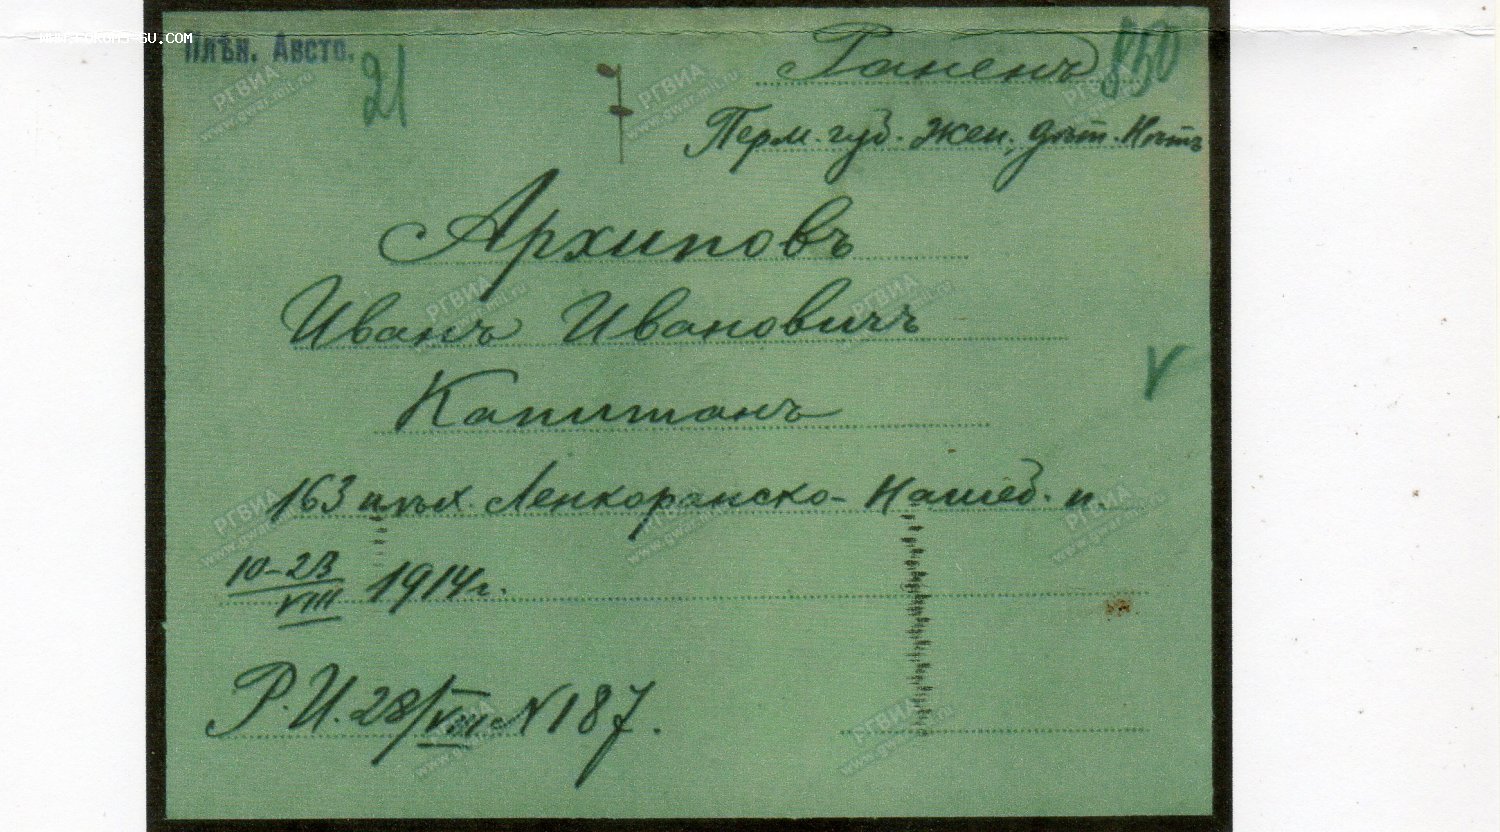 Плѣн. Австр.
21
Раненъ
850
Перм. губ. жен., дѣт. Нѣтъ
Архиповъ
Иванъ Ивановичъ
Капитанъ
V
163 пѣх. Ленкоранско- Нашеб. п.
10-23/VIII 1914г.
Р.И. 28/VIII № 187.
РГВИА
www.gwar.mil.ru